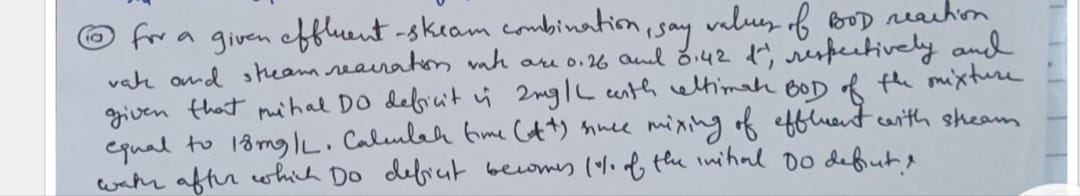 ⑩ For a given effluent-stream combination, say values of BOD reaction
rate and stream reaeration rate are 0.26 and 0.42 d⁻¹, respectively and
given that initial DO deficit is 2mg/L with ultimate BOD of the mixture
equal to 18mg/L. Calculate time (t) since mixing of effluent with stream
water after which DO deficit becomes 1% of the initial DO deficit?